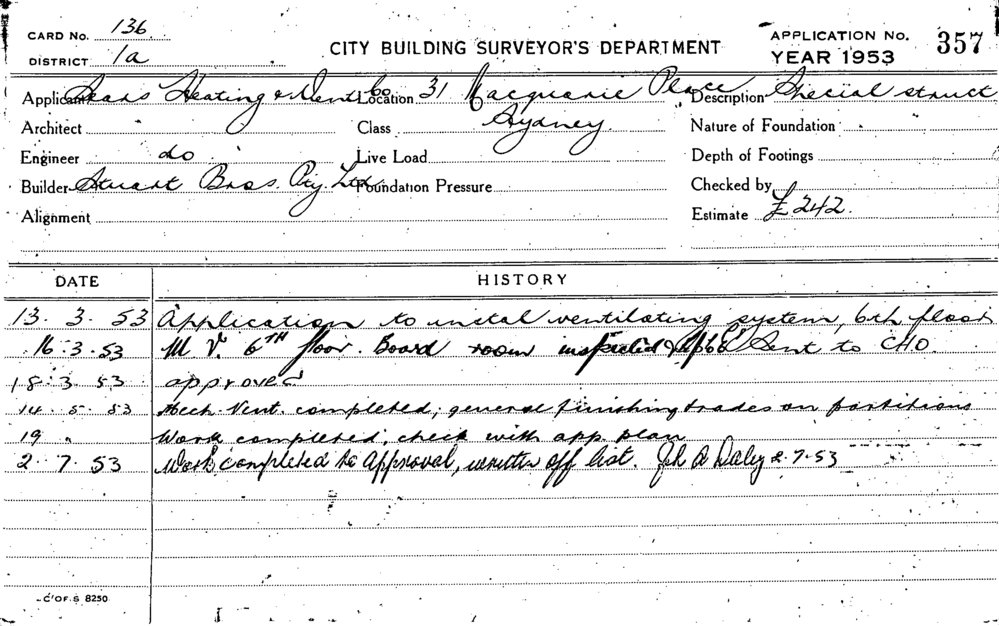 CARD NO. 136
DISTRICT 1a
CITY BUILDING SURVEYOR'S DEPARTMENT
APPLICATION NO. 357
YEAR 1953
Applicant Heating & Vent Co Location 31 Macquarie Place Description Special struct
Sydney
Architect Class Nature of Foundation
Engineer do Live Load Depth of Footings
Builder Stuart Bros. Pty. Ltd. Foundation Pressure Checked by
Alignment Estimate £242.
DATE HISTORY
13. 3. 53 Application to instal ventilating system, 6th floor
16.3.53 M V. 6TH floor. Board room inspected Sent to CHO.
18.3.53 approved
14.5.53 Mech. Vent. completed, general finishing trades on partitions
19 " Work completed, check with app plan
2.7.53 Work completed to Approval, written off list. Daley 2.7.53
C. OF. S 8250